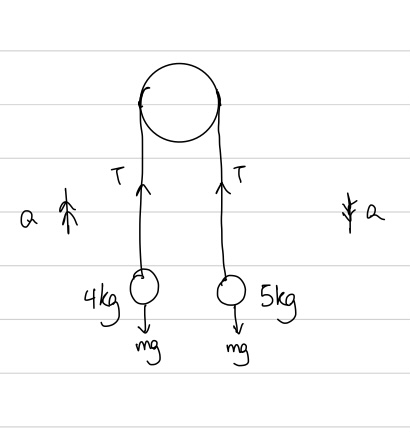 T T
a a
4kg 5kg
mg mg